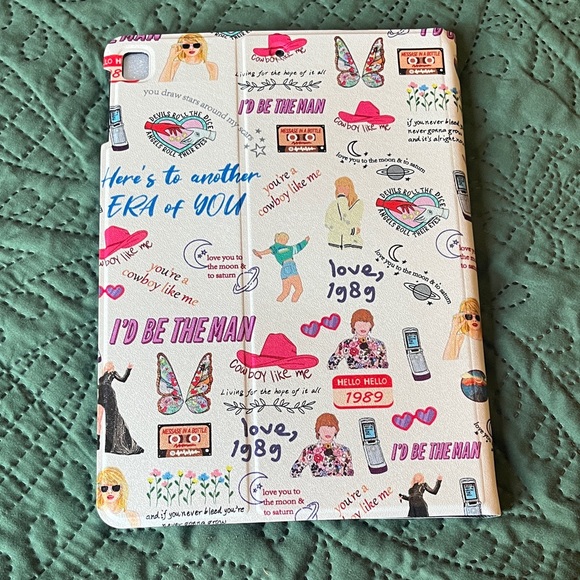 I'D BE THE MAN
HELLO HE
89
Cowboy like me
Living for the hope of it all
you draw stars around my scars
I'D BE THE MAN
MESSAGE IN A BOTTLE
I'D BE THE M
DEVILS ROLL THE DICE
ANGELS ROLL THEIR EYES
MESSAGE IN A BOTTLE
Cowboy like me
if you never bleed
never gonna grow
and it's alright n
love you to the moon & to saturn
Here's to another
ERA of YOU
you're a
cowboy like me
DEVILS ROLL THE DICE
ANGELS ROLL THEIR EYES
cowboy like me
love you to
the moon &
to saturn
you're a
cowboy like me
love,
1989
love you to the moon & to saturn
love yo
the mo
to sat
I'D BE THE MAN
Cowboy like me
Living for the hope of it all
HELLO HELLO
1989
MESSAGE IN A BOTTLE
love,
1989
I'D BE THE MAN
love you to
the moon &
to saturn
you're a
cowboy like me
and if you never bleed you're
never gonna grow